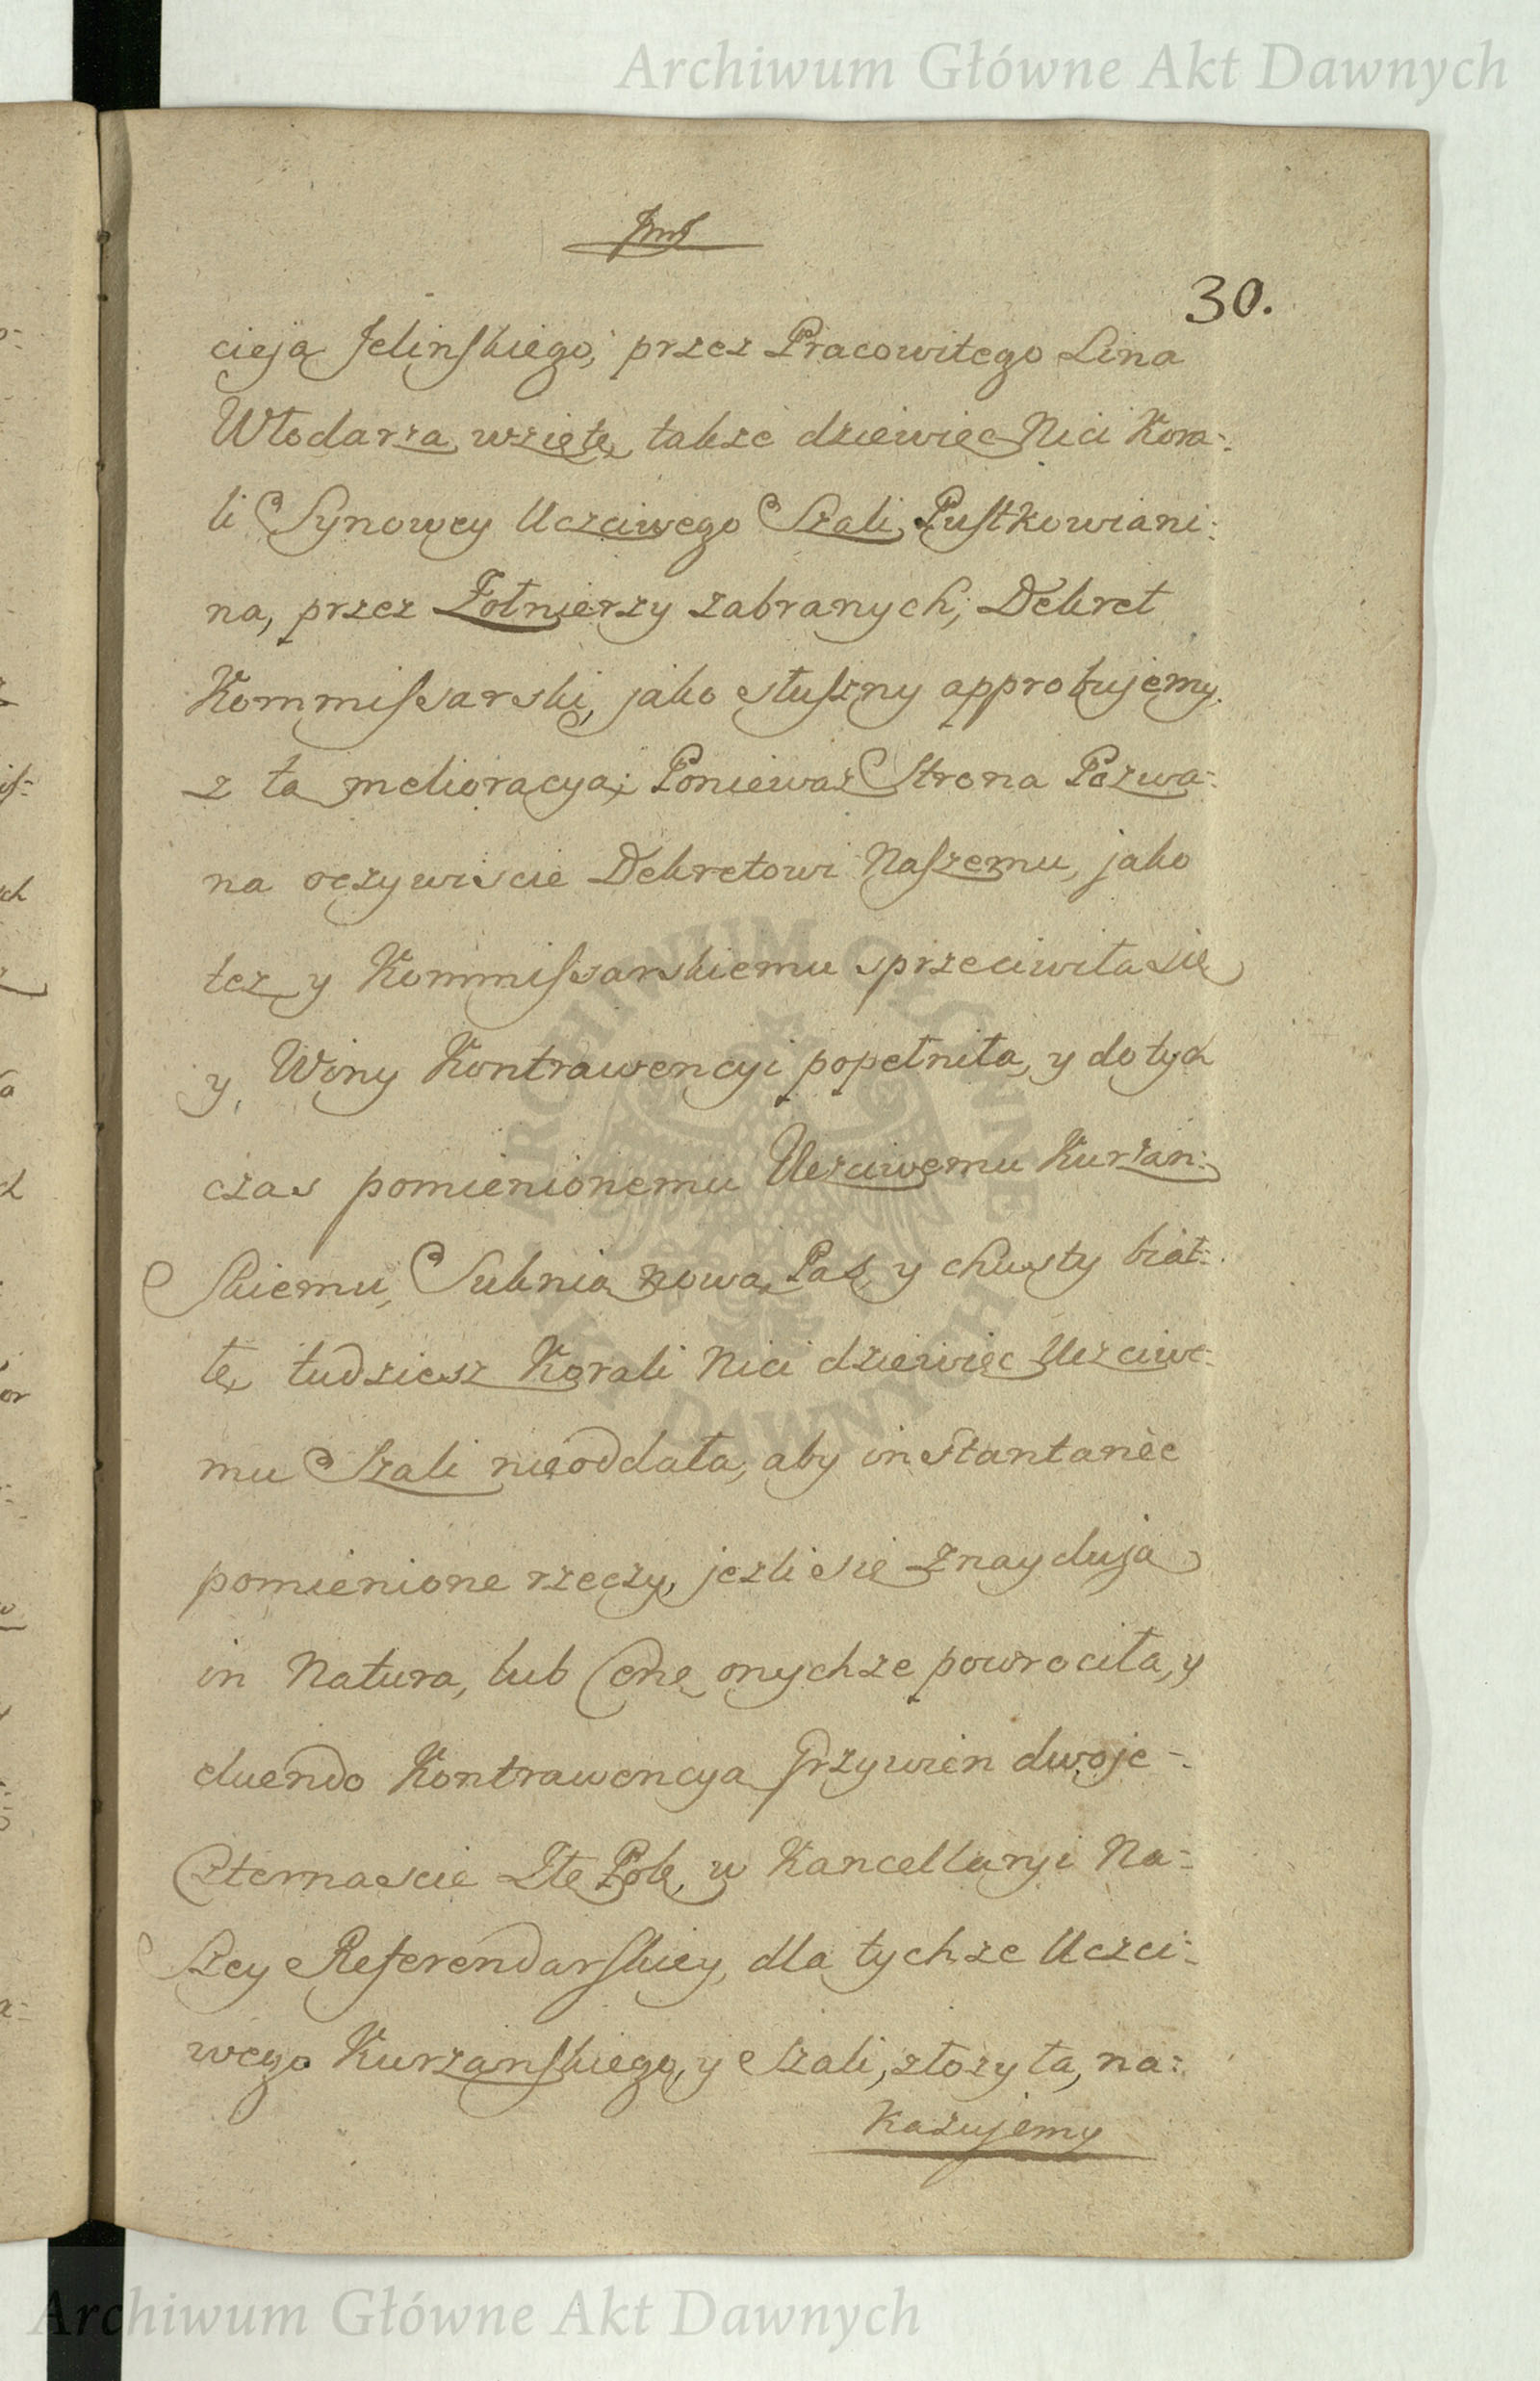 Archiwum Główne Akt Dawnych
30.
cieja Jelinskiego, przez Pracowitego Lina
Włodarza, wzięte, takze dziewięc Nici Kora-
li Synowcy Uczciwego Szali Pustkowiani-
na, przez Zołnierzy zabranych, Dekret
Kommissarski, jako słuszny approbujemy.
z tą melioracyą; Poniewaz Strona Pozwa-
na oczywiscie Dekretowi Naszemu, jako
tez y Kommissarskiemu sprzeciwiła się
y, Winy Kontrawencyi popełniła, y dotych
czas pomienionemu Uczciwemu Kurzan-
skiemu, Suknią nową, Pas, y chusty biał-
łe, tudziesz Korali Nici dziewięc Uczciwe-
mu Szali nieoddała, aby instantanèe
pomienione rzeczy, jezli się znaydują
in Natura, lub Cenę onychze powrociła, y
luendo Kontrawencyą Grzywien dwoje-
Czternascie Złe Pole, w Kancellaryi Na-
szey Referendarskiey, dla tychze Uczci-
wego Kurzanskiego, y Szali, złozyła, na-
kazujemy
ARCHIWUM GŁÓWNE AKT DAWNYCH
Archiwum Główne Akt Dawnych